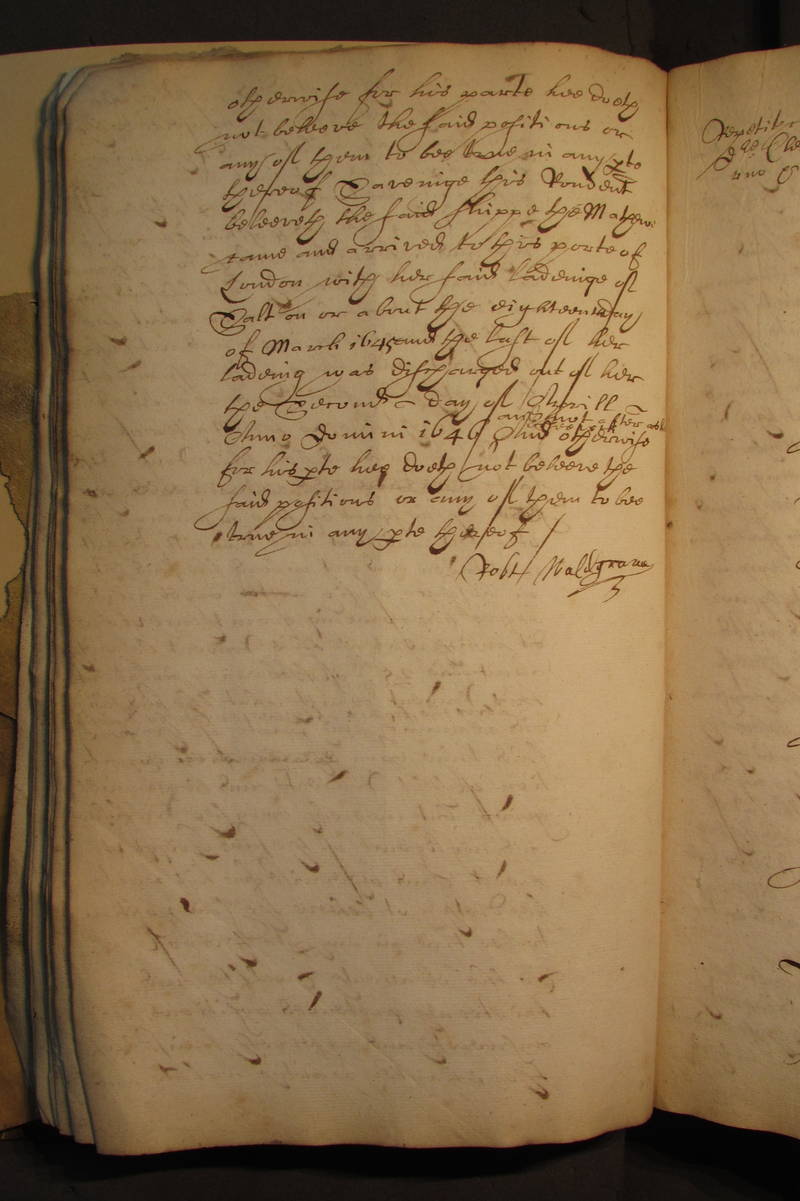 otherwise for his parte hee doeth
not beleeve the said positions or
any of them to bee true in any pte
thereof Saveinge this Rondent
beleeveth the said shippe the Mathew
came and arrived to this porte of
London with her said ladeinge of
Salt on or about the eighteenth day
of March 1645 and the last of her
ladeing was discharged out of her
the Second day of Aprill
and not after
Anno Domini 1646 And otherwise
for his pte hee doeth not beleeve the
said positions or any of them to bee
true in any pte thereof /
Robt Waldgrave
Repetitus